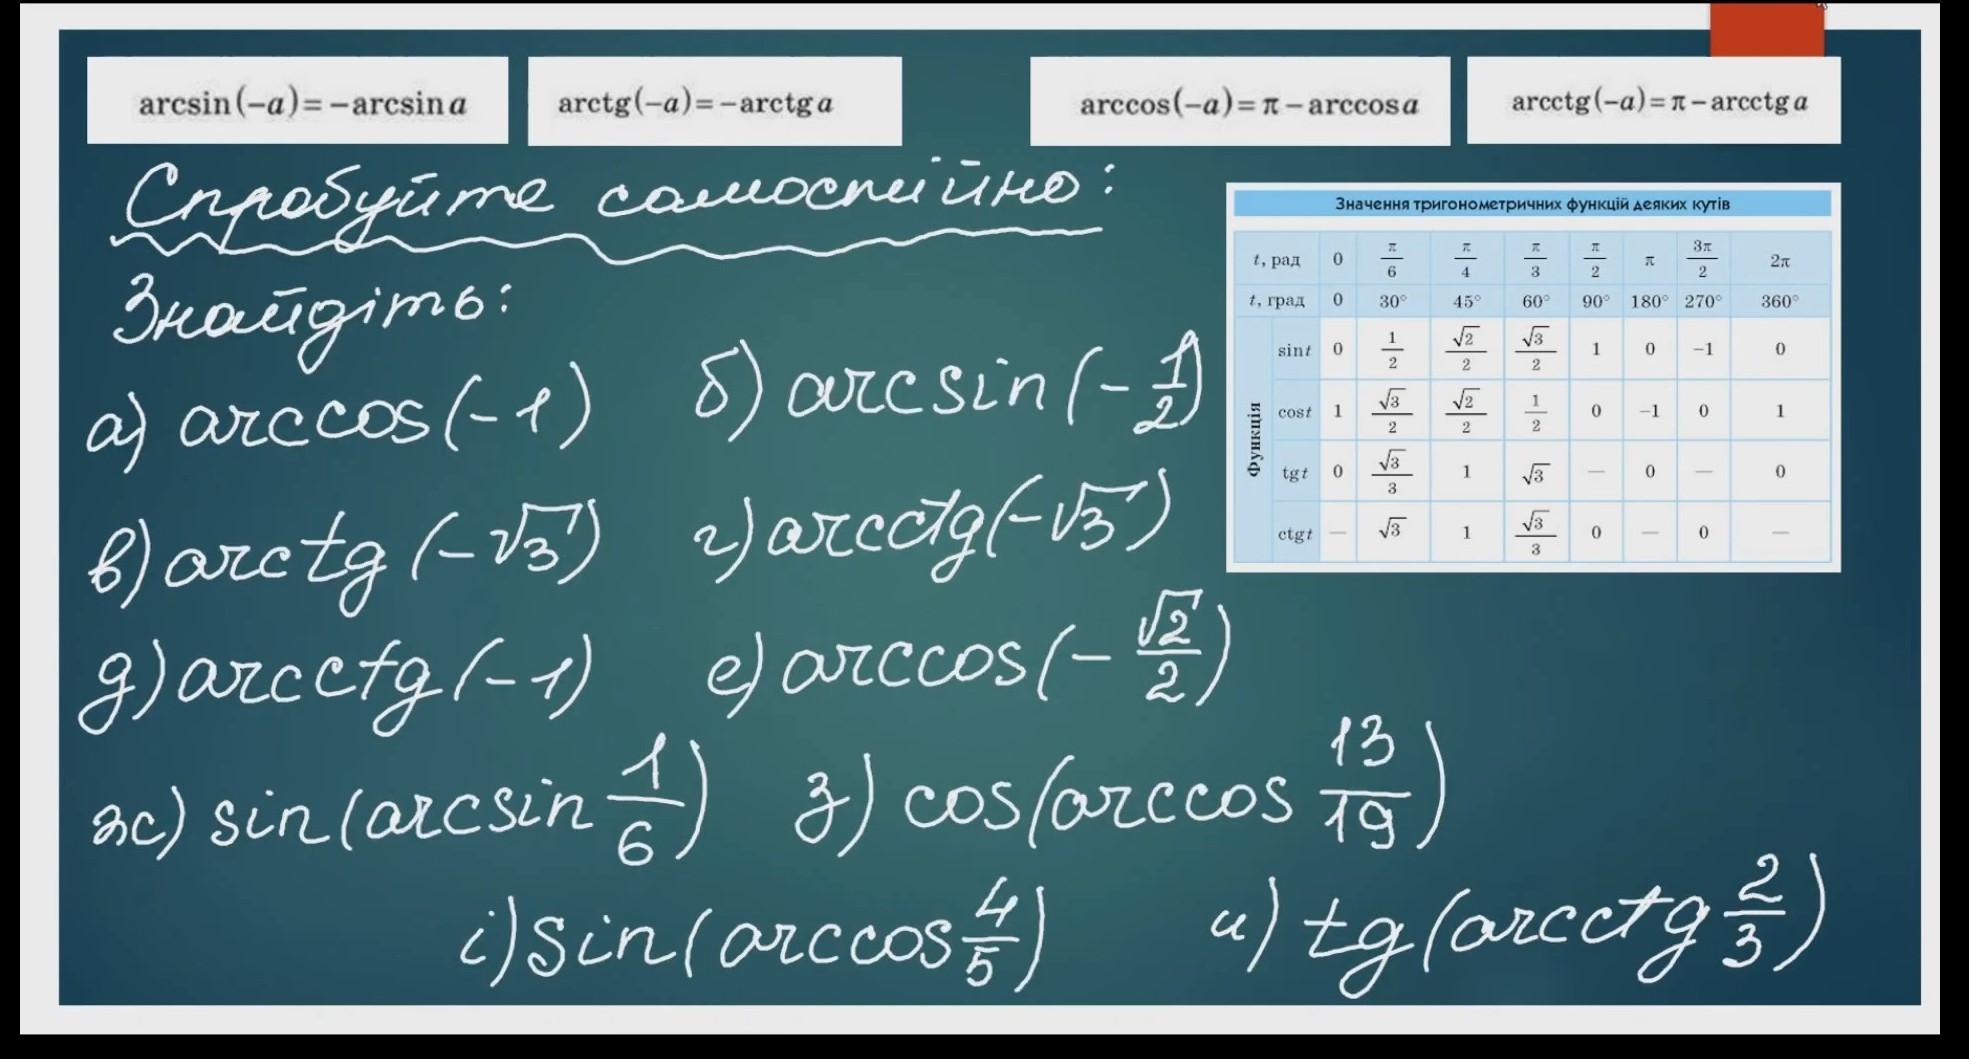 arcsin(−a)=−arcsin a
arctg(−a)=−arctg a
arccos(−a)=π−arccos a
arcctg(−a)=π−arcctg a
Спробуйте самостійно:
Знайдіть:
а) arccos(-1)
б) arcsin(-1/2)
в) arctg(-√3)
г) arcctg(-√3)
д) arcctg(-1)
е) arccos(-√2/2)
ж) sin(arcsin 1/6)
з) cos(arccos 13/19)
і) sin(arccos 4/5)
и) tg(arcctg 2/3)
Значення тригонометричних функцій деяких кутів
t, рад 0 π/6 π/4 π/3 π/2 π 3π/2 2π
t, град 0 30° 45° 60° 90° 180° 270° 360°
Функція
sin t 0 1/2 √2/2 √3/2 1 0 −1 0
cos t 1 √3/2 √2/2 1/2 0 −1 0 1
tg t 0 √3/3 1 √3 — 0 — 0
ctg t — √3 1 √3/3 0 — 0 —